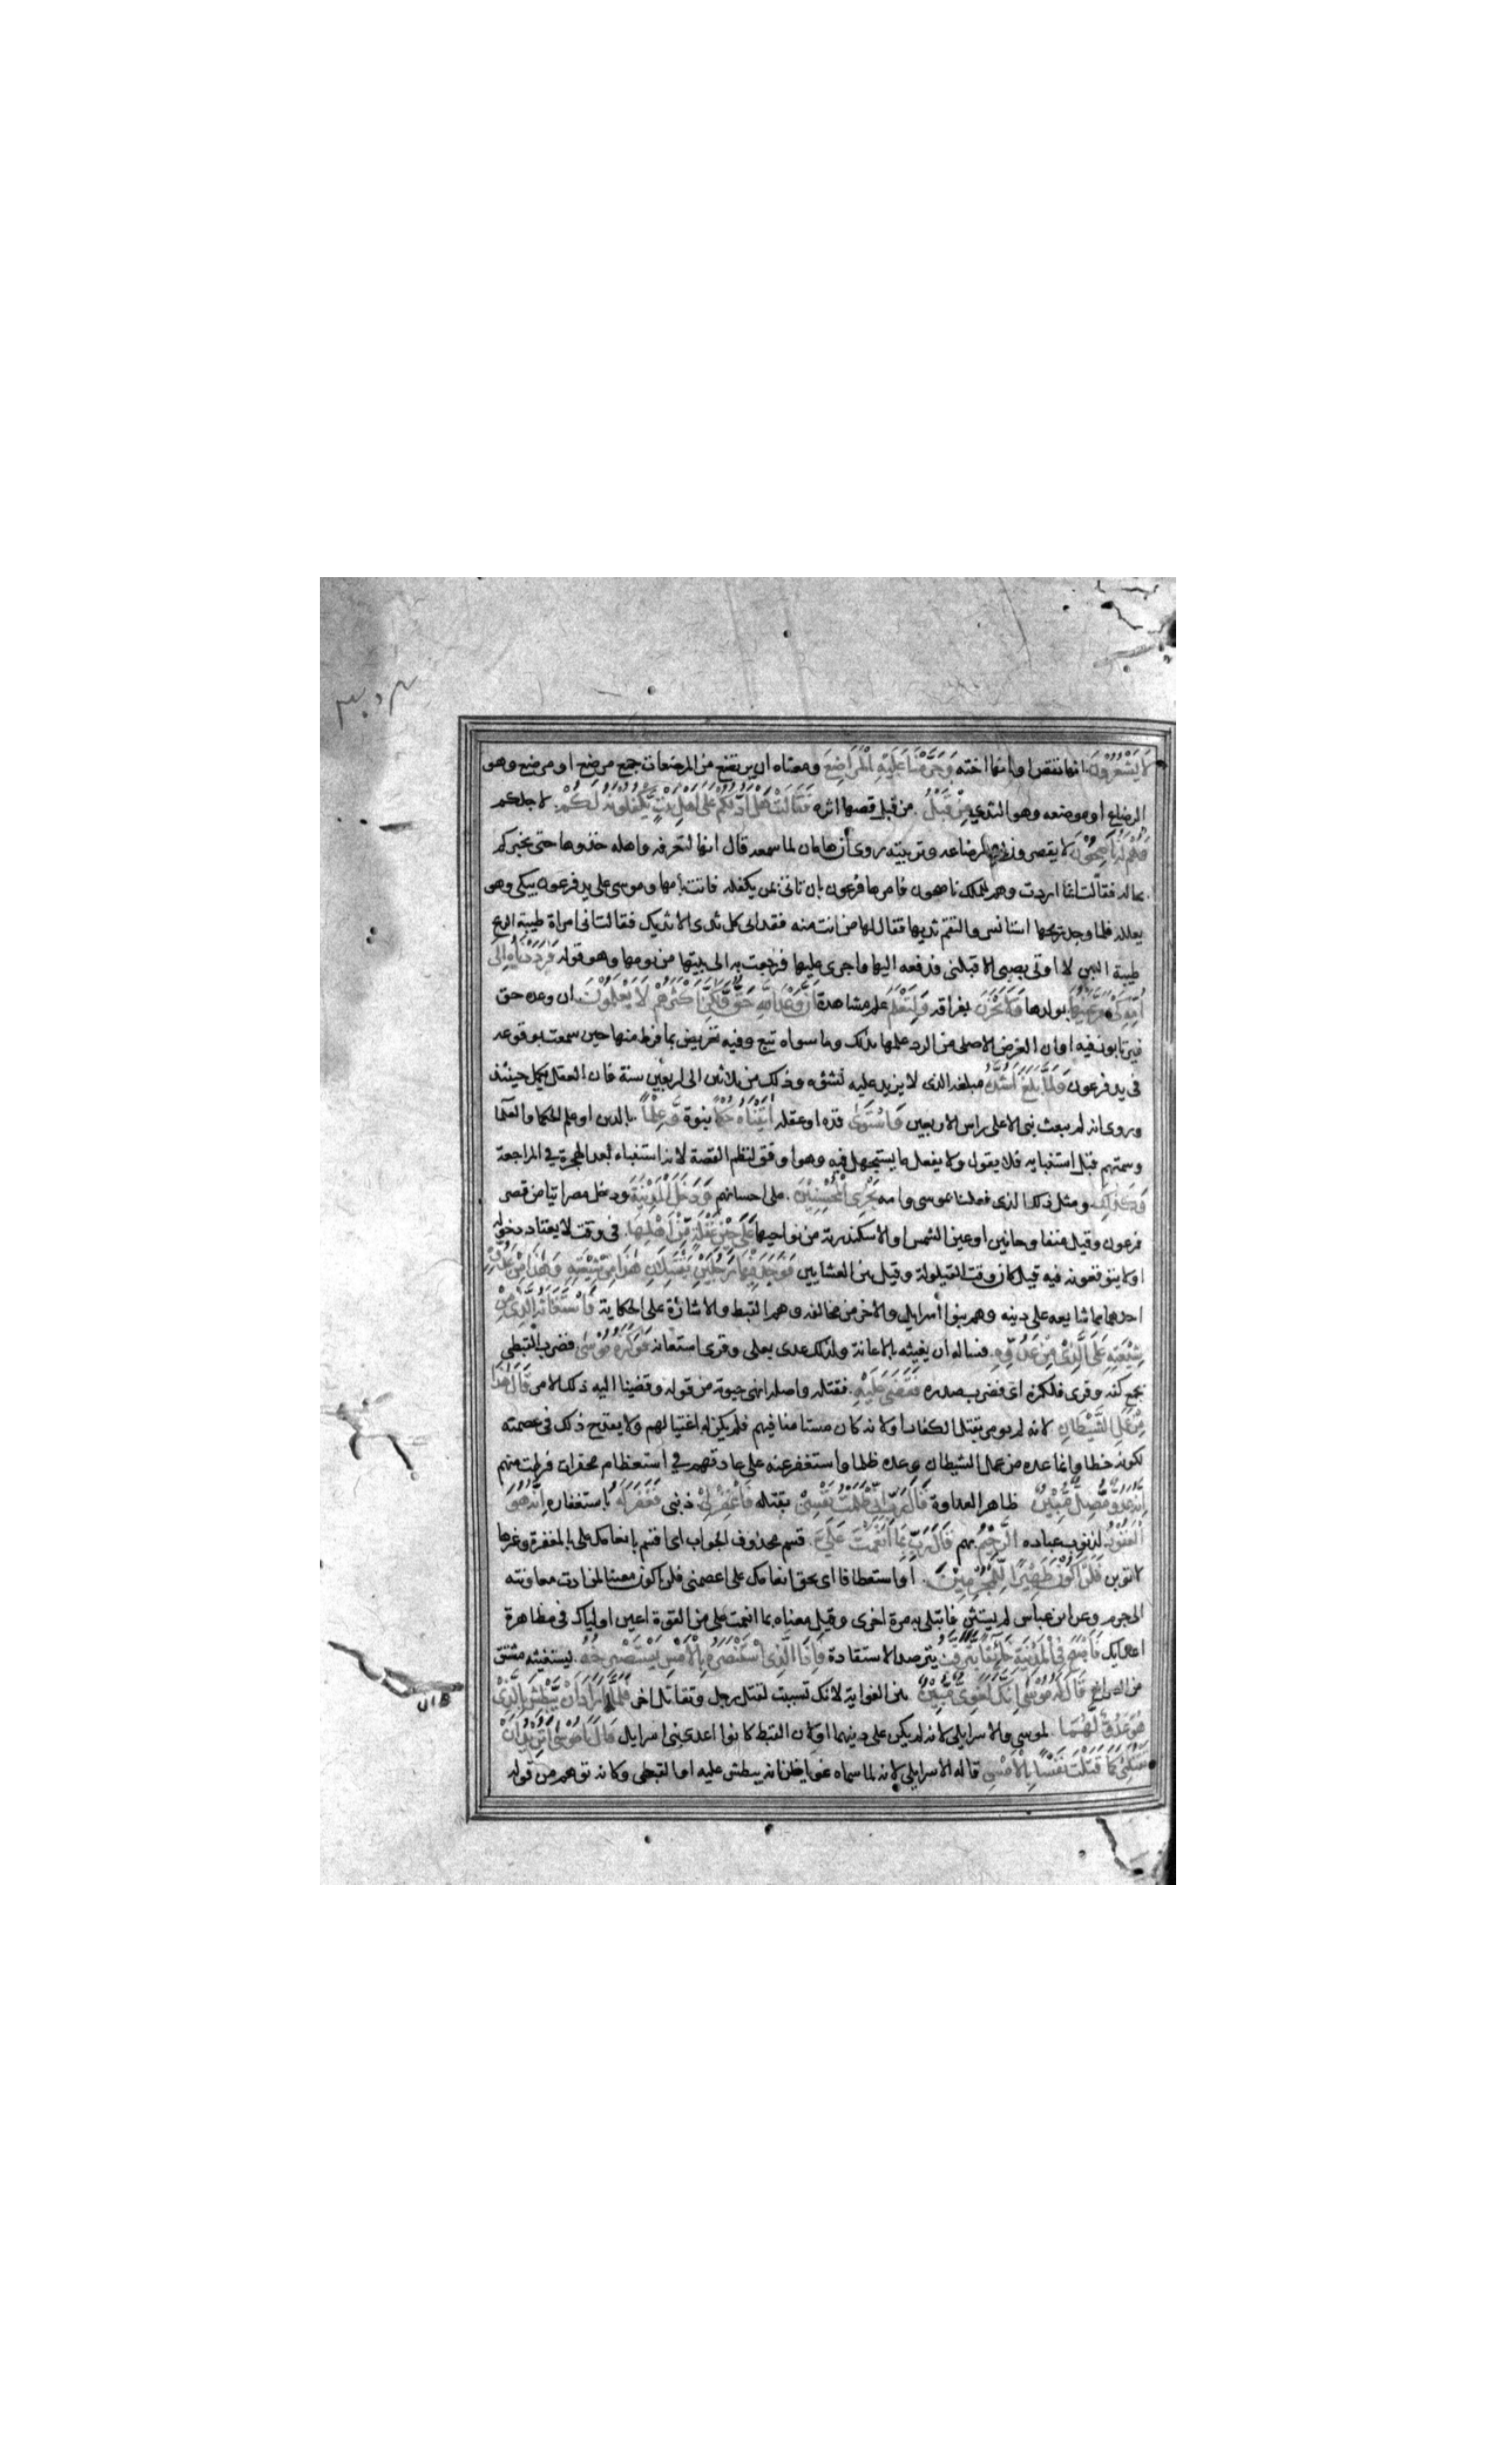 لَا يَشْعُرُونَ انها تقص او انها اخته وَحَرَّمْنَا عَلَيْهِ الْمَرَاضِعَ ومعناه ان يرتضع من المرضعات جمع مرضع او مرضع وهو
الرضاع او موضعه وهو الثدي مِنْ قَبْلُ من قبل قصها اثره فَقَالَتْ هَلْ اَدُلُّكُمْ عَلٰى اَهْلِ بَيْتٍ يَكْفُلُونَهُ لَكُمْ لاجلكم
وَهُمْ لَهُ نَاصِحُونَ لا يقصرون في ارضاعه وتربيته روى أن هامان لما سمعه قال انها لتعرفه واهله خذوها حتى تخبر كم
بحاله فقالت انما اردت وهم للملك ناصحون فامرها فرعون بان تاتي بمن يكفله فاتت بأمها وموسى على يد فرعون يبكى وهو
يعلله فلما وجد ريحها استانس والتقم ثديها فقال لها من انت منه فقد ابى كل ثدى الا ثديك فقالت انى امراة طيبة الريح
طيبة اللبن لا اوتى بصبى الا قبلنى فدفعه اليها واجرى عليها فرجعت به الى بيتها من يومها وهو قوله فَرَدَدْنَاهُ اِلٰى
اُمِّهِ كَيْ تَقَرَّ عَيْنُهَا بولدها وَلَا تَحْزَنَ بفراقه وَلِتَعْلَمَ علم مشاهدة اَنَّ وَعْدَ اللّٰهِ حَقٌّ وَّلٰكِنَّ اَكْثَرَهُمْ لَا يَعْلَمُوْنَ ان وعده حق
فيرتابون فيه او ان الغرض الاصلى من الرد علمها بذلك وما سواه تبع وفيه تعريض بما فرط منها حين سمعت بوقوعه
فى يد فرعون وَلَمَّا بَلَغَ اَشُدَّهُ مبلغه الذى لا يزيد عليه نشؤه وذلك من ثلاثين الى اربعين سنة فان العقل يكمل حينئذ
وروى انه لم يبعث نبى الا على راس الاربعين وَاسْتَوٰى قده او عقله اٰتَيْنَاهُ حُكْمًا بنوة وَّعِلْمًا بالدين او علم الحكما والعلما
وسمتهم قبل استنبايه فلا يقول ولا يفعل ما يستجهل فيه وهو اوفق لنظم القصة لانه استنباء بعد الهجرة في المراجعة
وَكَذٰلِكَ ومثل ذلك الذى فعلنا بموسى وامه نَجْزِى الْمُحْسِنِيْنَ على احسانهم وَدَخَلَ الْمَدِيْنَةَ ودخل مصر اتيا من قصر
فرعون وقيل منفا وحانين او عين الشمس او الاسكندرية من نواحيها عَلٰى حِيْنِ غَفْلَةٍ مِّنْ اَهْلِهَا فى وقت لا يعتاد دخوله
او لا يتوقعونه فيه قيل كان وقت القيلولة وقيل بين العشايين فَوَجَدَ فِيْهَا رَجُلَيْنِ يَقْتَتِلَانِ هٰذَا مِنْ شِيْعَتِهٖ وَهٰذَا مِنْ عَدُوِّهٖ
احدهما مما شايعه على دينه وهم بنوا أسرايل والاخر من مخالفه وهم القبط والاشارة على الحكاية فَاسْتَغَاثَهُ الَّذِىْ مِنْ
شِيْعَتِهٖ عَلَى الَّذِىْ مِنْ عَدُوِّهٖ فساله ان يغيثه بالاعانة ولذلك عدى بعلى وقرى استعانه فَوَكَزَهُ مُوْسٰى فضرب القبطى
بجمع كفه وقرى فلكزه اى فضرب بصدره فَقَضٰى عَلَيْهِ فقتله واصله انهى حيوته من قوله وقضينا اليه ذلك الامر قَالَ هٰذَا
مِنْ عَمَلِ الشَّيْطَانِ لانه لم يومر بقتل الكفار او لانه كان مستامنا فيهم فلم يكن له اغتيالهم ولا يقدح ذلك فى عصمته
لكونه خطا وانما عده من عمل الشيطان وعده ظلما واستغفر عنه على عادتهم في استعظام محقرات فرطت منهم
اِنَّهُ عَدُوٌّ مُّضِلٌّ مُّبِيْنٌ ظاهر العداوة قَالَ رَبِّ اِنِّىْ ظَلَمْتُ نَفْسِىْ بقتله فَاغْفِرْ لِىْ ذنبى فَغَفَرَ لَهُ باستغفاره اِنَّهُ هُوَ
الْغَفُوْرُ لذنوب عباده الرَّحِيْمُ بهم قَالَ رَبِّ بِمَا اَنْعَمْتَ عَلَىَّ قسم محذوف الجواب اى اقسم بانعامك على بالمغفرة وغيرها
لاتوبن فَلَنْ اَكُوْنَ ظَهِيْرًا لِّلْمُجْرِمِيْنَ او استعطافا اى بحق انعامك على اعصمنى فلن اكون معينا لمن ادت معاونته
الى جرم وعن ابن عباس لم يستثن فابتلى به مرة اخرى وقيل معناه بما انعمت على من القوة اعين اولياك فى مظاهرة
اعدايك فَاَصْبَحَ فِى الْمَدِيْنَةِ خَائِفًا يَّتَرَقَّبُ يترصد الاستقادة فَاِذَا الَّذِى اسْتَنْصَرَهُ بِالْاَمْسِ يَسْتَصْرِخُهُ يستغيثه مشتق
من الصراخ قَالَ لَهُ مُوْسٰى اِنَّكَ لَغَوِىٌّ مُّبِيْنٌ بين الغواية لانك تسببت لقتل رجل وتقاتل اخر فَلَمَّا اَنْ اَرَادَ اَنْ يَّبْطِشَ بِالَّذِىْ
هُوَ عَدُوٌّ لَّهُمَا لموسى والاسرايلى لانه لم يكن على دينهما او لان القبط كانوا اعدى بنى اسرايل قَالَ يَا مُوْسٰى اَتُرِيْدُ اَنْ
تَقْتُلَنِىْ كَمَا قَتَلْتَ نَفْسًا بِالْاَمْسِ قاله الاسرايلى لانه لما سماه غويا ظن انه يبطش عليه او القبطى وكانه توهم من قوله